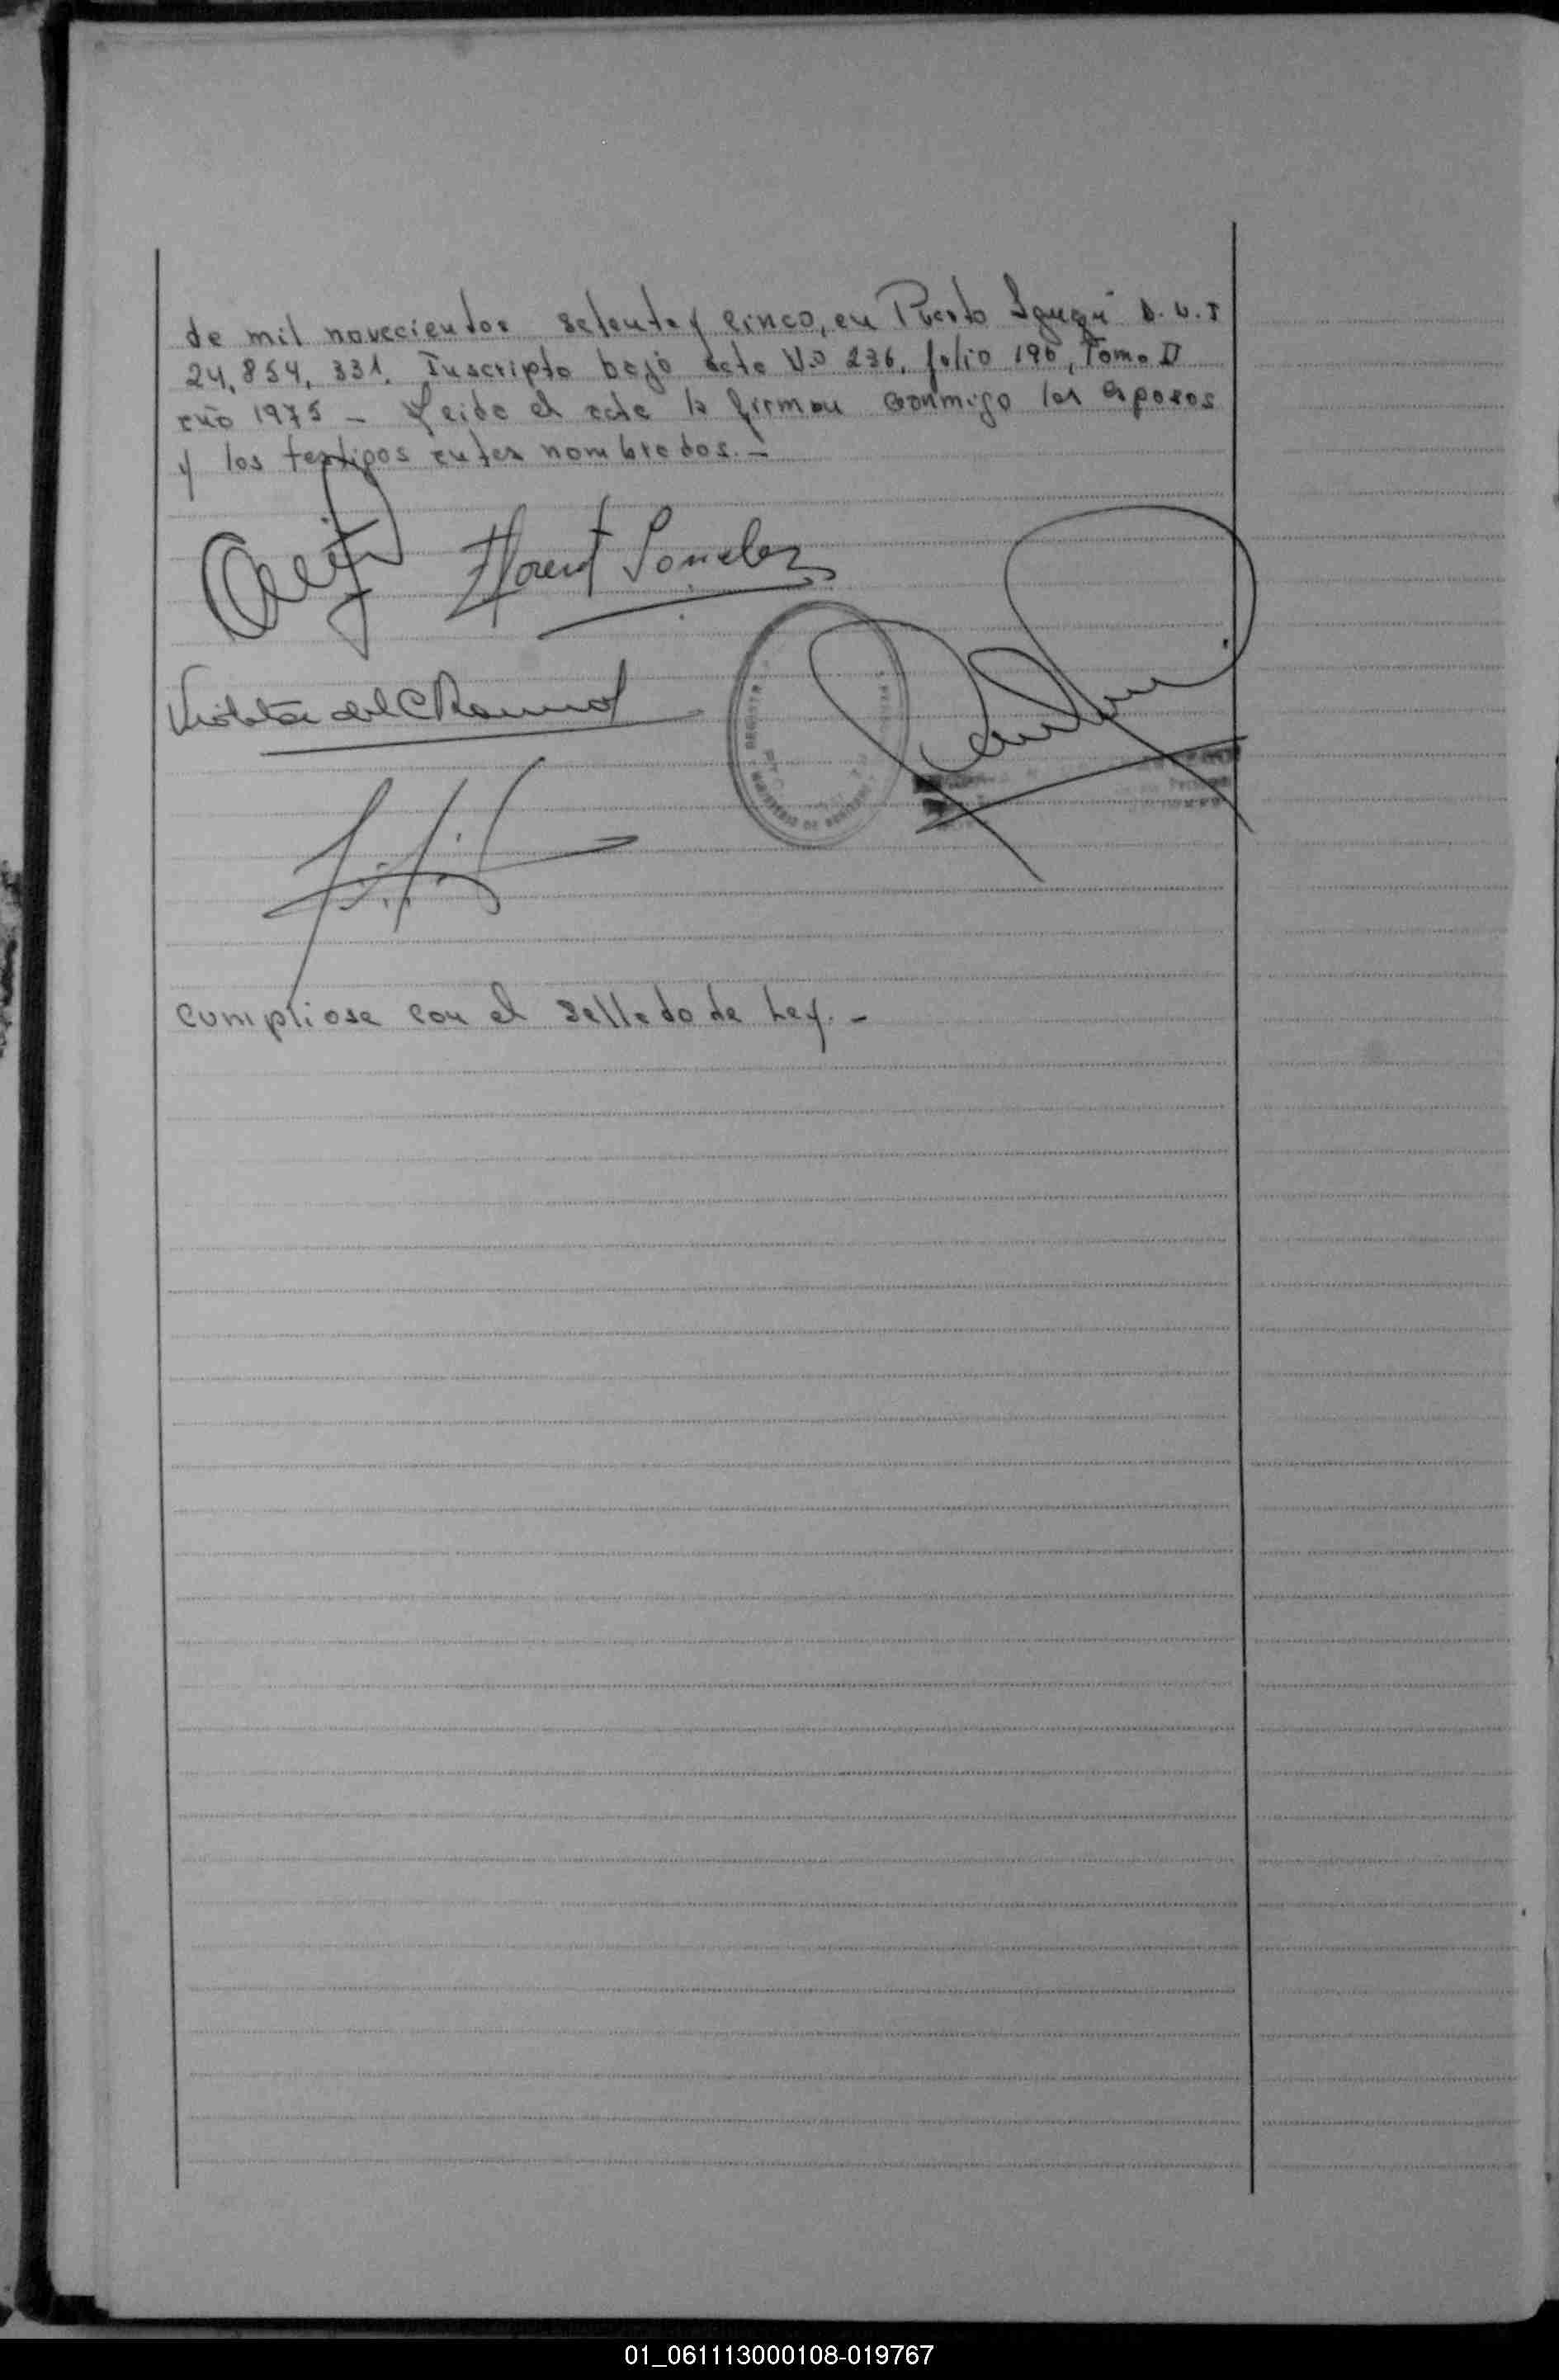 de mil novecientos setenta y cinco, en Puerto Iguazú D.N.I
24.854.331. Inscripto bajo acta N.o 236, folio 196, Tomo II
año 1975 - Leida el acta la firman conmigo los esposos
y los testigos antes nombrados.-
Violeta del C
REGISTR
MINISTERIO DE
cumpliose con el sellado de Ley.-
01_061113000108-019767